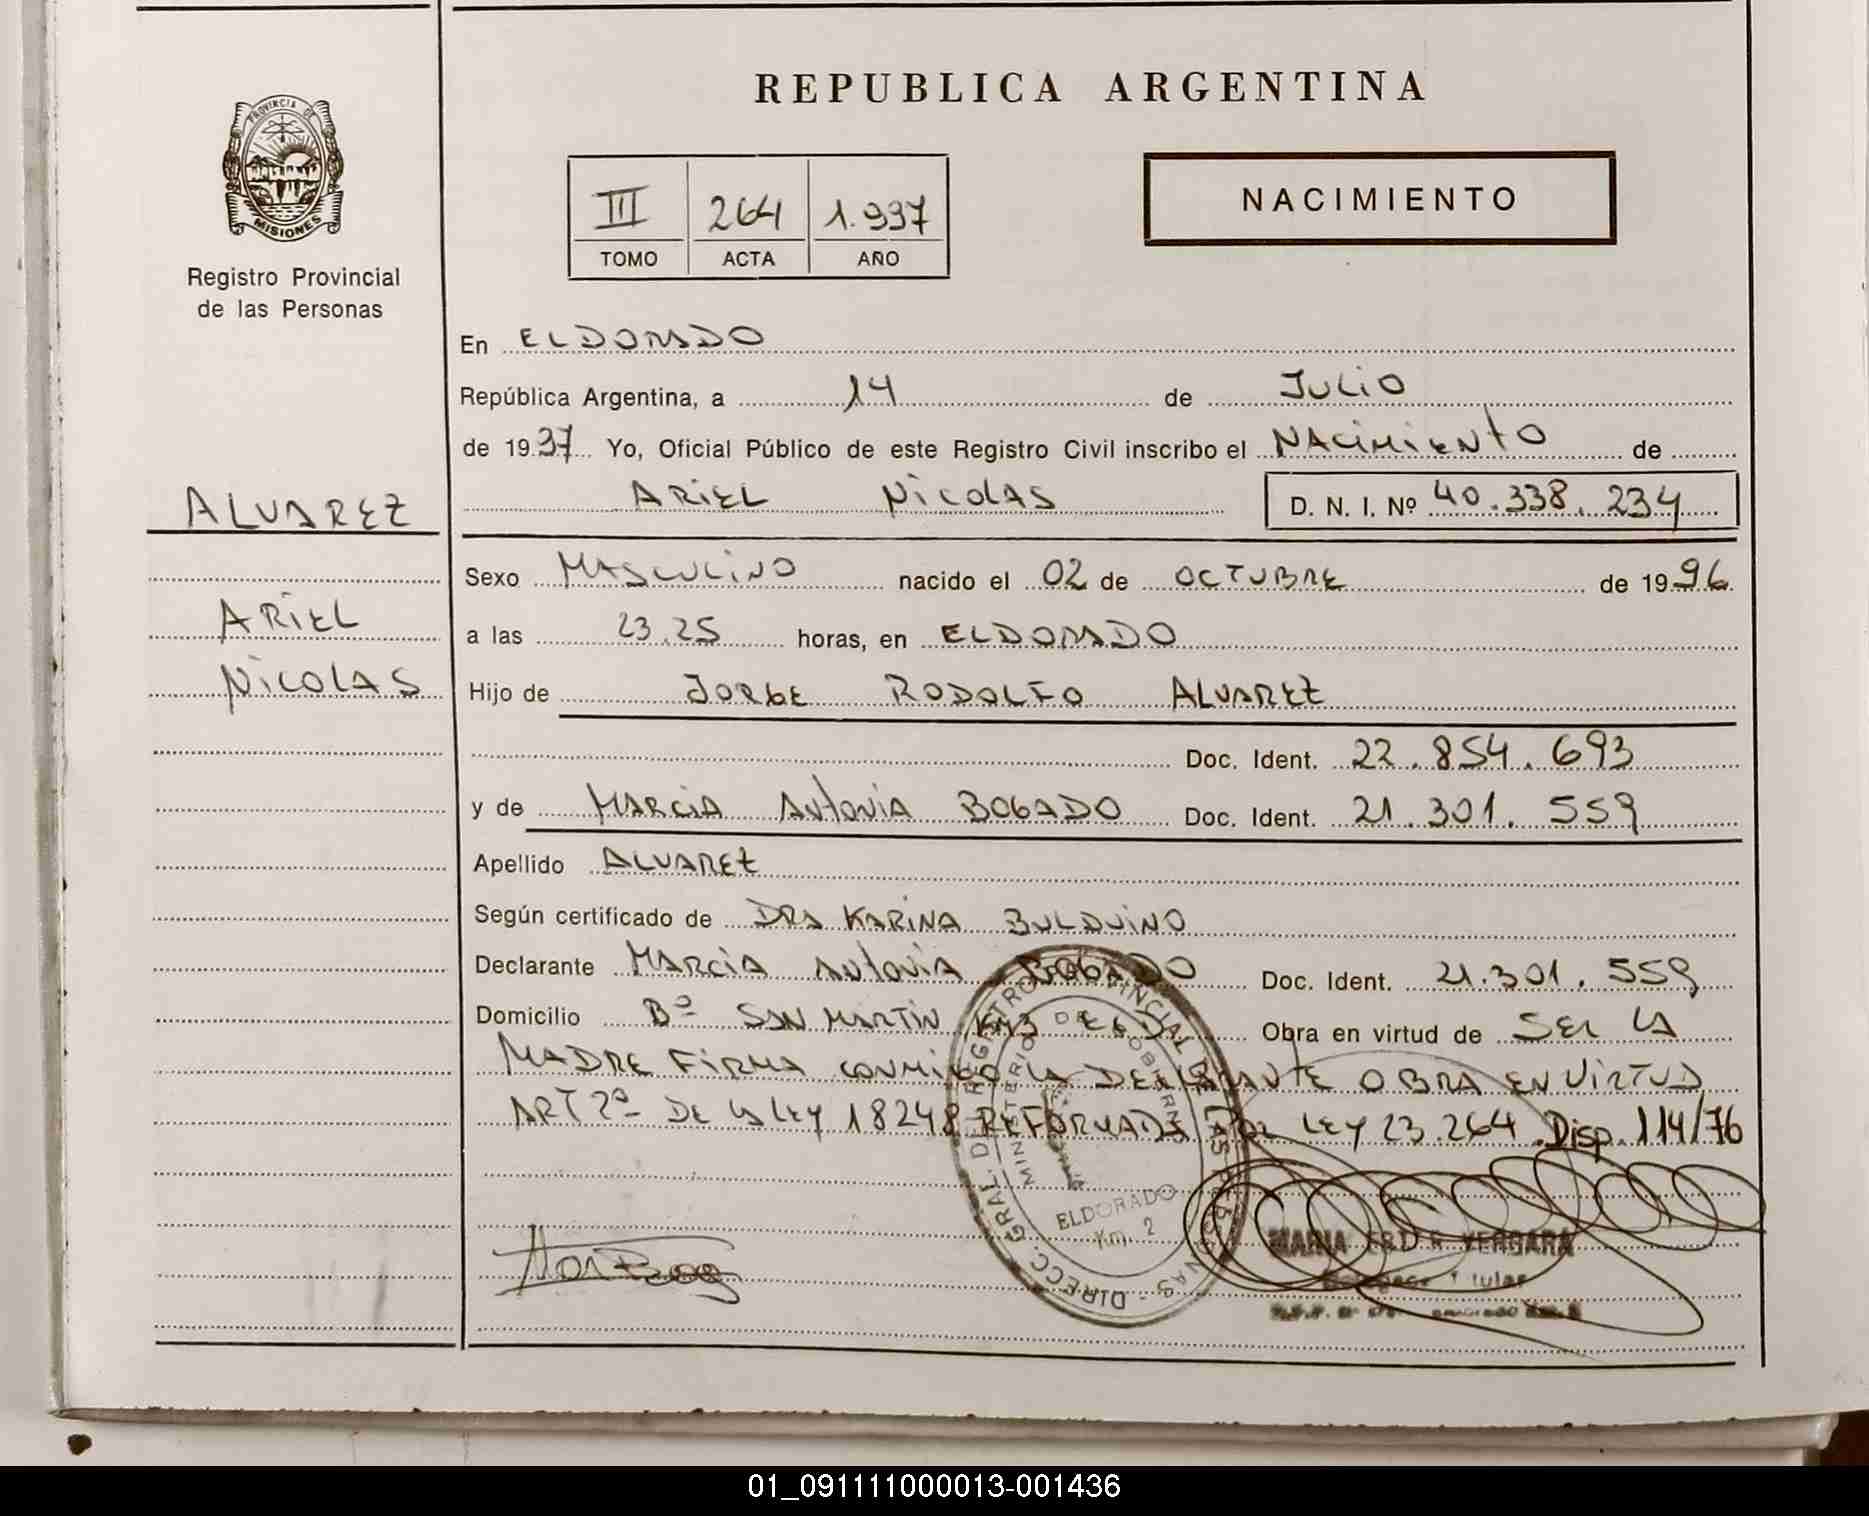 REPUBLICA ARGENTINA
PROVINCIA DE
MISIONES
Registro Provincial
de las Personas
III 264 1.997
TOMO ACTA AÑO
NACIMIENTO
En ELDORADO
República Argentina, a 14 de JULIO
de 1997 Yo, Oficial Público de este Registro Civil inscribo el NACIMIENTO de
ARIEL NICOLAS D. N. I. Nº 40.338.234
ALVAREZ
ARIEL
NICOLAS
Sexo MASCULINO nacido el 02 de OCTUBRE de 1996
a las 23.25 horas, en ELDORADO
Hijo de JORGE RODOLFO ALVAREZ
Doc. Ident. 22.854.693
y de MARCIA ANTONIA BOGADO Doc. Ident. 21.301.559
Apellido ALVAREZ
Según certificado de DRA KARINA BULDUINO
Declarante MARCIA ANTONIA BOGADO Doc. Ident. 21.301.559
Domicilio Bº SAN MARTIN KM3 ELD Obra en virtud de SER LA
MADRE FIRMA CONMIGO LA DECLARANTE OBRA EN VIRTUD
ART 2º DE LA LEY 18248 REFORMADA POR LEY 23.264. Disp. 114/76
DIRECC. GRAL. DEL REGISTRO PROVINCIAL DE LAS PERSONAS
MINISTERIO DE GOBIERNO
ELDORADO
Km. 2
MARIA VERGARA
Titular
01_091111000013-001436